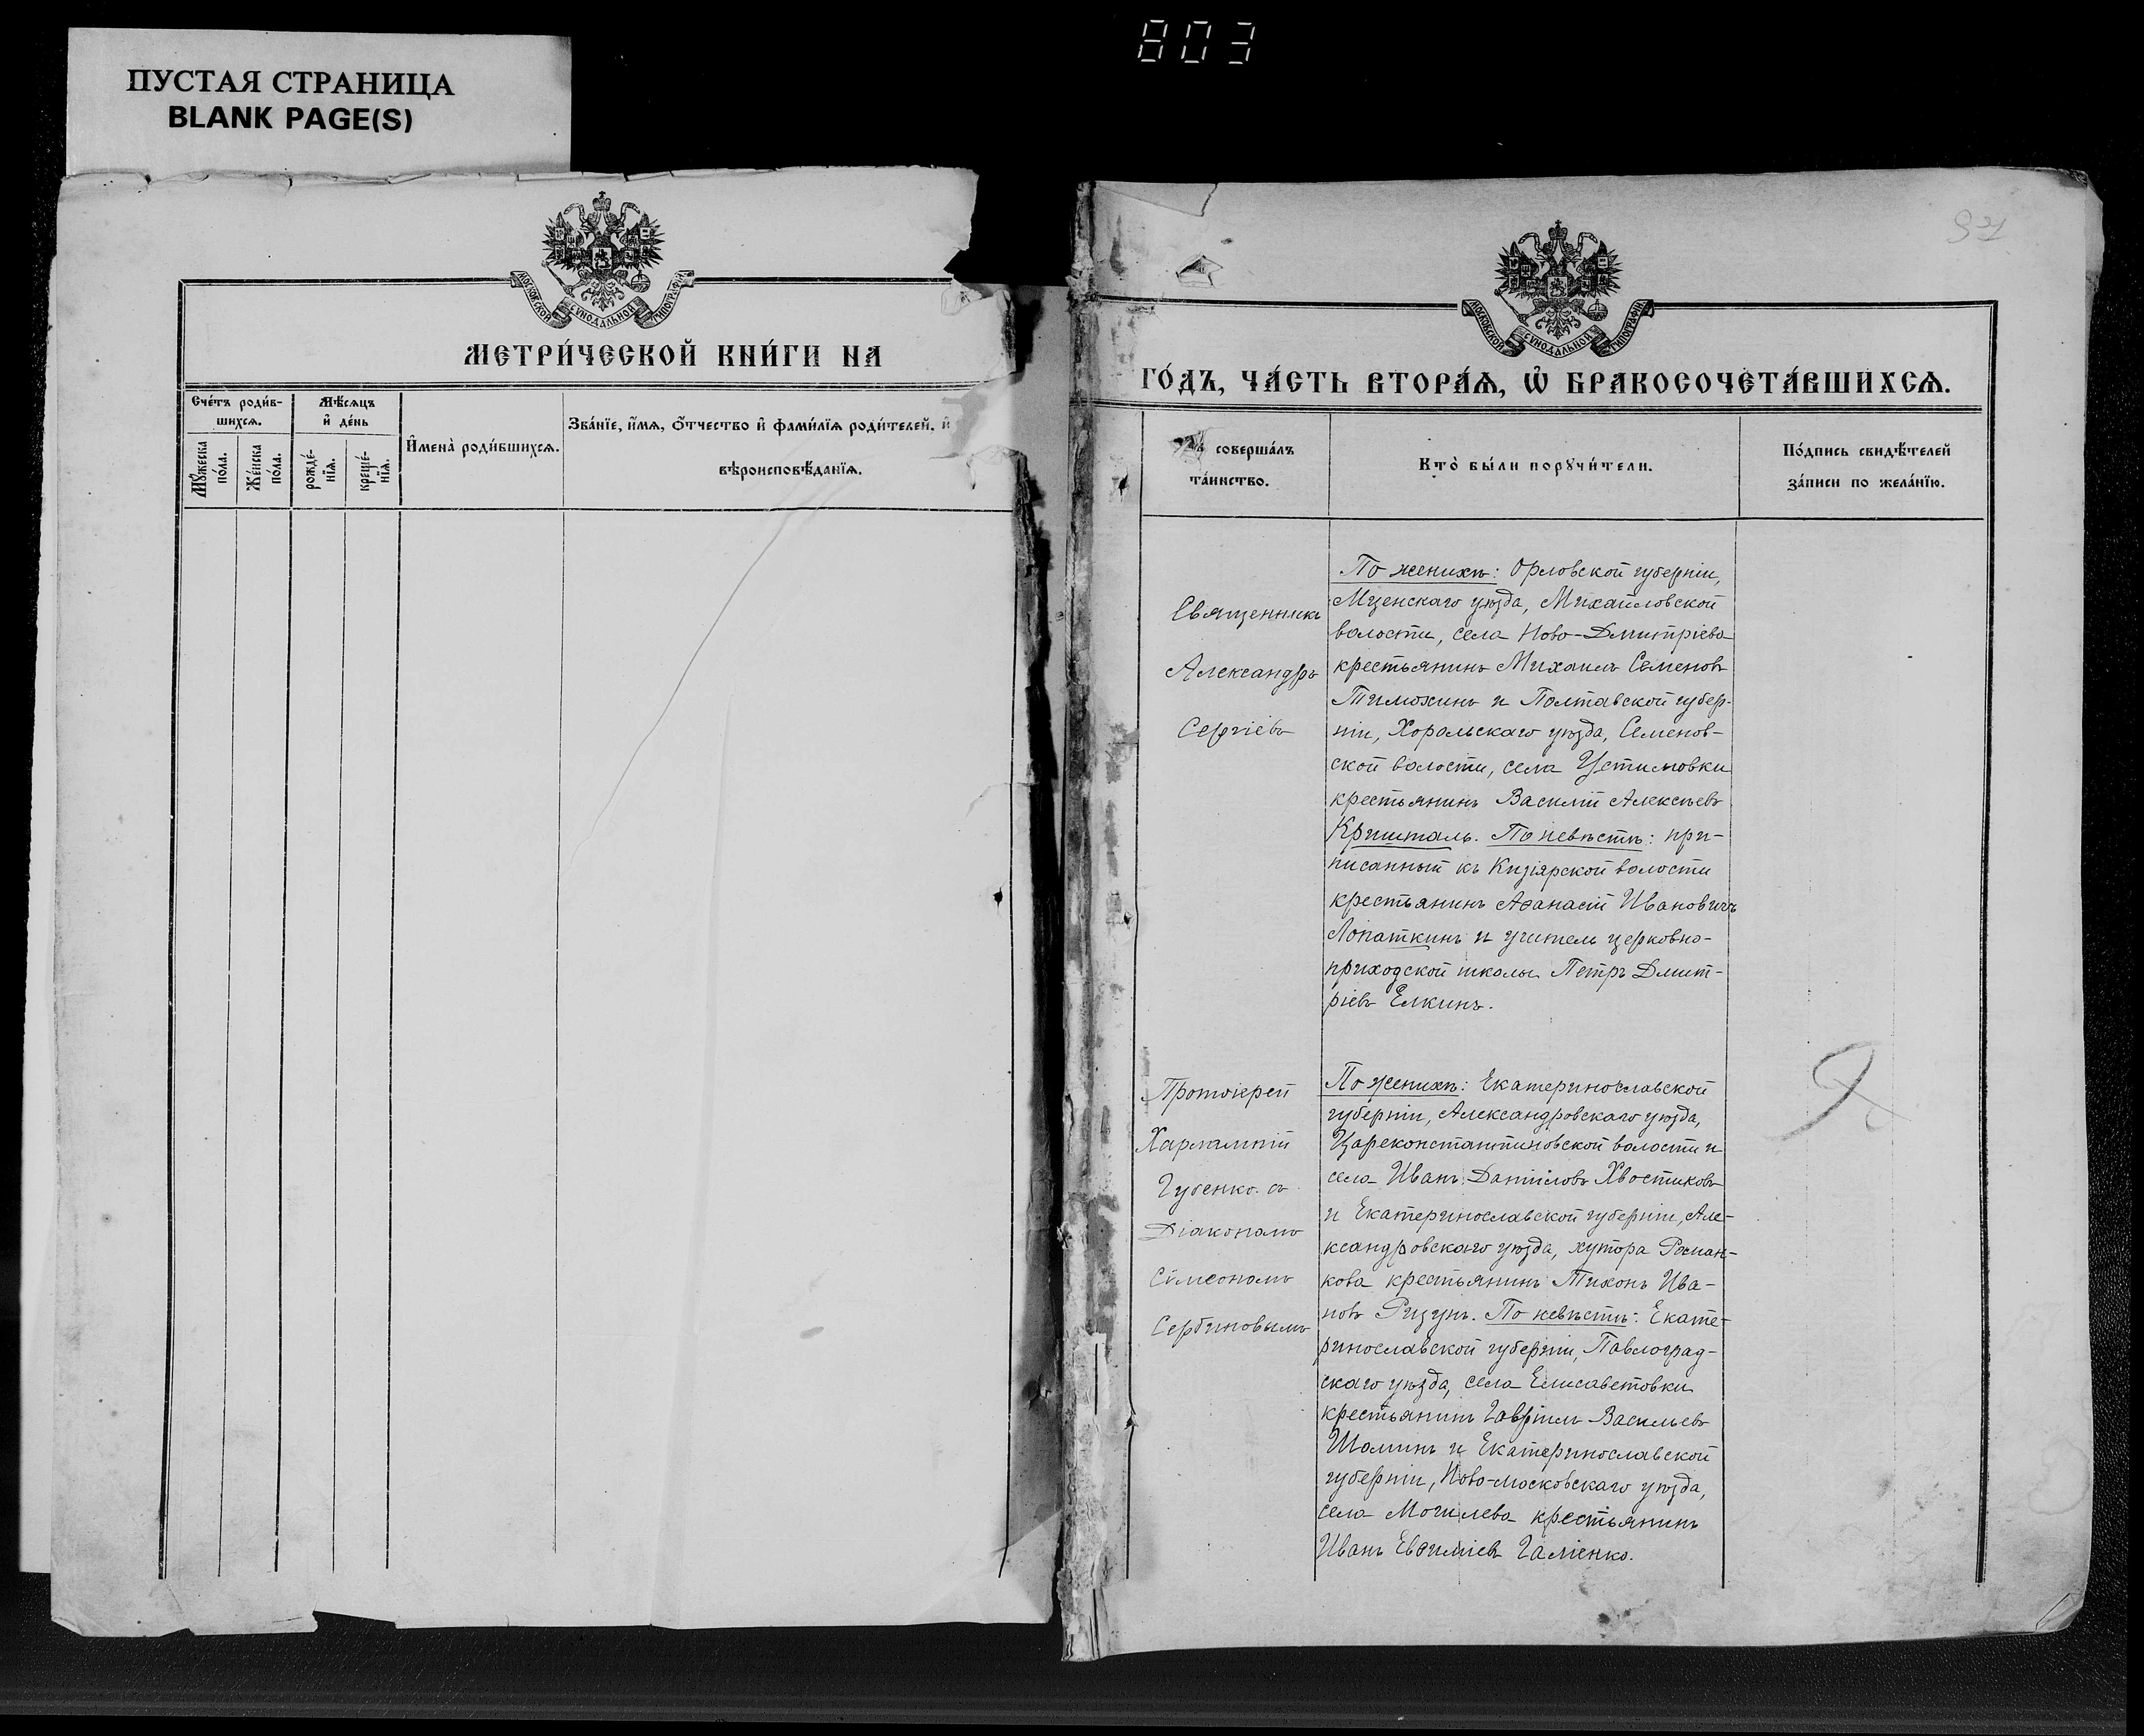 803
ПУСТАЯ СТРАНИЦА
BLANK PAGE(S)
МОСКОВСКОЙ СѴНОДАЛЬНОЙ ТИПОГРАФІИ
МЕТРИ́ЧЕСКОЙ КНИ́ГИ НА
Сче́тъ роди́в-
шихсѧ.
Мѣ́сѧцъ
и҆ де́нь
Мꙋ́жеска
по́ла.
Же́нска
по́ла.
рожде́-
нїѧ.
креще́-
нїѧ.
И҆мена̀ роди́вшихсѧ.
Зва́нїе, и҆́мѧ, ѻ҆́тчество и҆ фами́лїѧ роди́телей, и҆
вѣроисповѣ́данїѧ.
МОСКОВСКОЙ СѴНОДАЛЬНОЙ ТИПОГРАФІИ
ГО́ДЪ, ЧА́СТЬ ВТОРА́Ѧ, Ѡ҆ БРАКОСОЧЕТА́ВШИХСѦ.
соверша́лъ
та́инство.
Кто̀ бы́ли порꙋчи́тели.
По́дпись свидѣ́телей
за́писи по жела́нїю.
Священникъ
Александръ
Сергіевъ
По женихѣ: Орловской губерніи,
Мценскаго уѣзда, Михайловской
волости, села Ново-Дмитріева
крестьянинъ Михаилъ Семеновъ
Тимохинъ и Полтавской губер-
ніи, Хорольскаго уѣзда, Семенов-
ской волости, села Устимовки
крестьянинъ Василій Алексѣевъ
Кришталь. По невѣстѣ: при-
писанный къ Кизіярской волости
крестьянинъ Аѳанасій Ивановичъ
Лопаткинъ и учитель церковно-
приходской школы Петръ Дмит-
ріевъ Елкинъ.
Протоіерей
Харлампій
Губенко съ
Діакономъ
Симеономъ
Сербиновымъ
По женихѣ: Екатеринославской
губерніи, Александровскаго уѣзда,
Цареконстантиновской волости и
села Иванъ Даниловъ Хвостиковъ
и Екатеринославской губерніи, Але-
ксандровскаго уѣзда, хутора Роман-
кова крестьянинъ Тихонъ Ива-
новъ Ризунъ. По невѣстѣ: Екате-
ринославской губерніи, Павлоград-
скаго уѣзда, села Елисаветовки
крестьянинъ Гавріилъ Васильевъ
Шаминъ и Екатеринославской
губерніи, Ново-московскаго уѣзда,
села Могилева крестьянинъ
Иванъ Евѳиміевъ Галіенко.